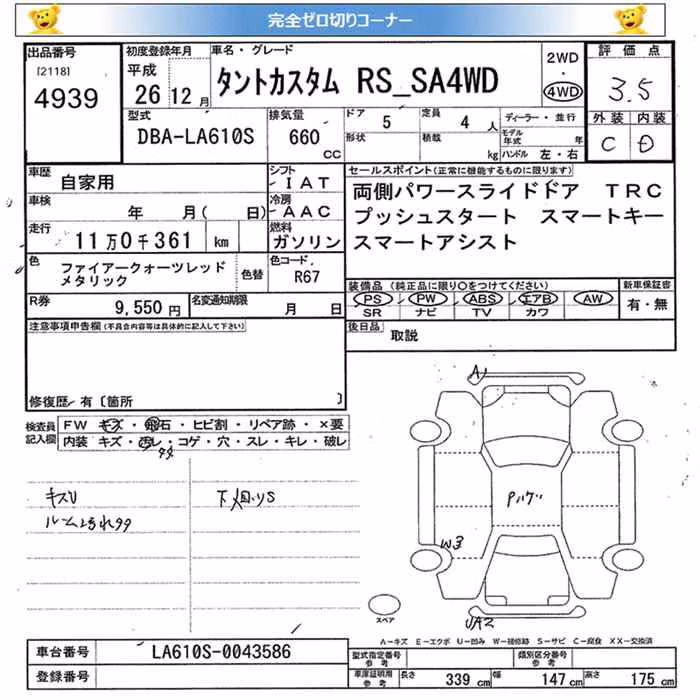 完全ゼロ切りコーナー
出品番号 初度登録年月 車名・グレード 2WD・4WD 評価点
[2118] 4939 平成26 12月 タントカスタム RS_SA4WD 3.5
型式 DBA-LA610S 排気量 660 CC ドア 5 定員 4 人 ディーラー・並行 外装 内装
形状 積載 kg モデル年式 年 ハンドル 左・右 C D
車歴 自家用 シフト IAT セールスポイント(正常に機能するものに限ります)
車検 年 月( 日) 冷房 AAC 両側パワースライドドア TRC
走行 11万0千361 km 燃料 ガソリン プッシュスタート スマートキー
スマートアシスト
色 ファイアークォーツレッドメタリック 色替 色コード R67
装備品(純正品に限り○をつけてください) 新車保証書
R券 9,550円 名変通知期限 月 日 PS PW ABS エアB AW 有・無
SR ナビ TV カワ
注意事項申告欄(不具合内容等は具体的に記入して下さい) 後日品 取説
修復歴 有〔箇所 〕
検査員記入欄 FW キズ・飛石・ヒビ割・リペア跡・×要
内装 キズ・汚レ・コゲ・穴・スレ・キレ・破レ
多々
キズU 下廻りS
ルーム汚れ多々
A1
W3
UA2
スペア
A-キズ E-エクボ U-凹み W-補修跡 S-サビ C-腐食 XX-交換済
車台番号 LA610S-0043586 型式指定番号 参考 類別区分番号 参考
登録番号 車庫証明用 参考 長さ 339 cm 幅 147 cm 高さ 175 cm